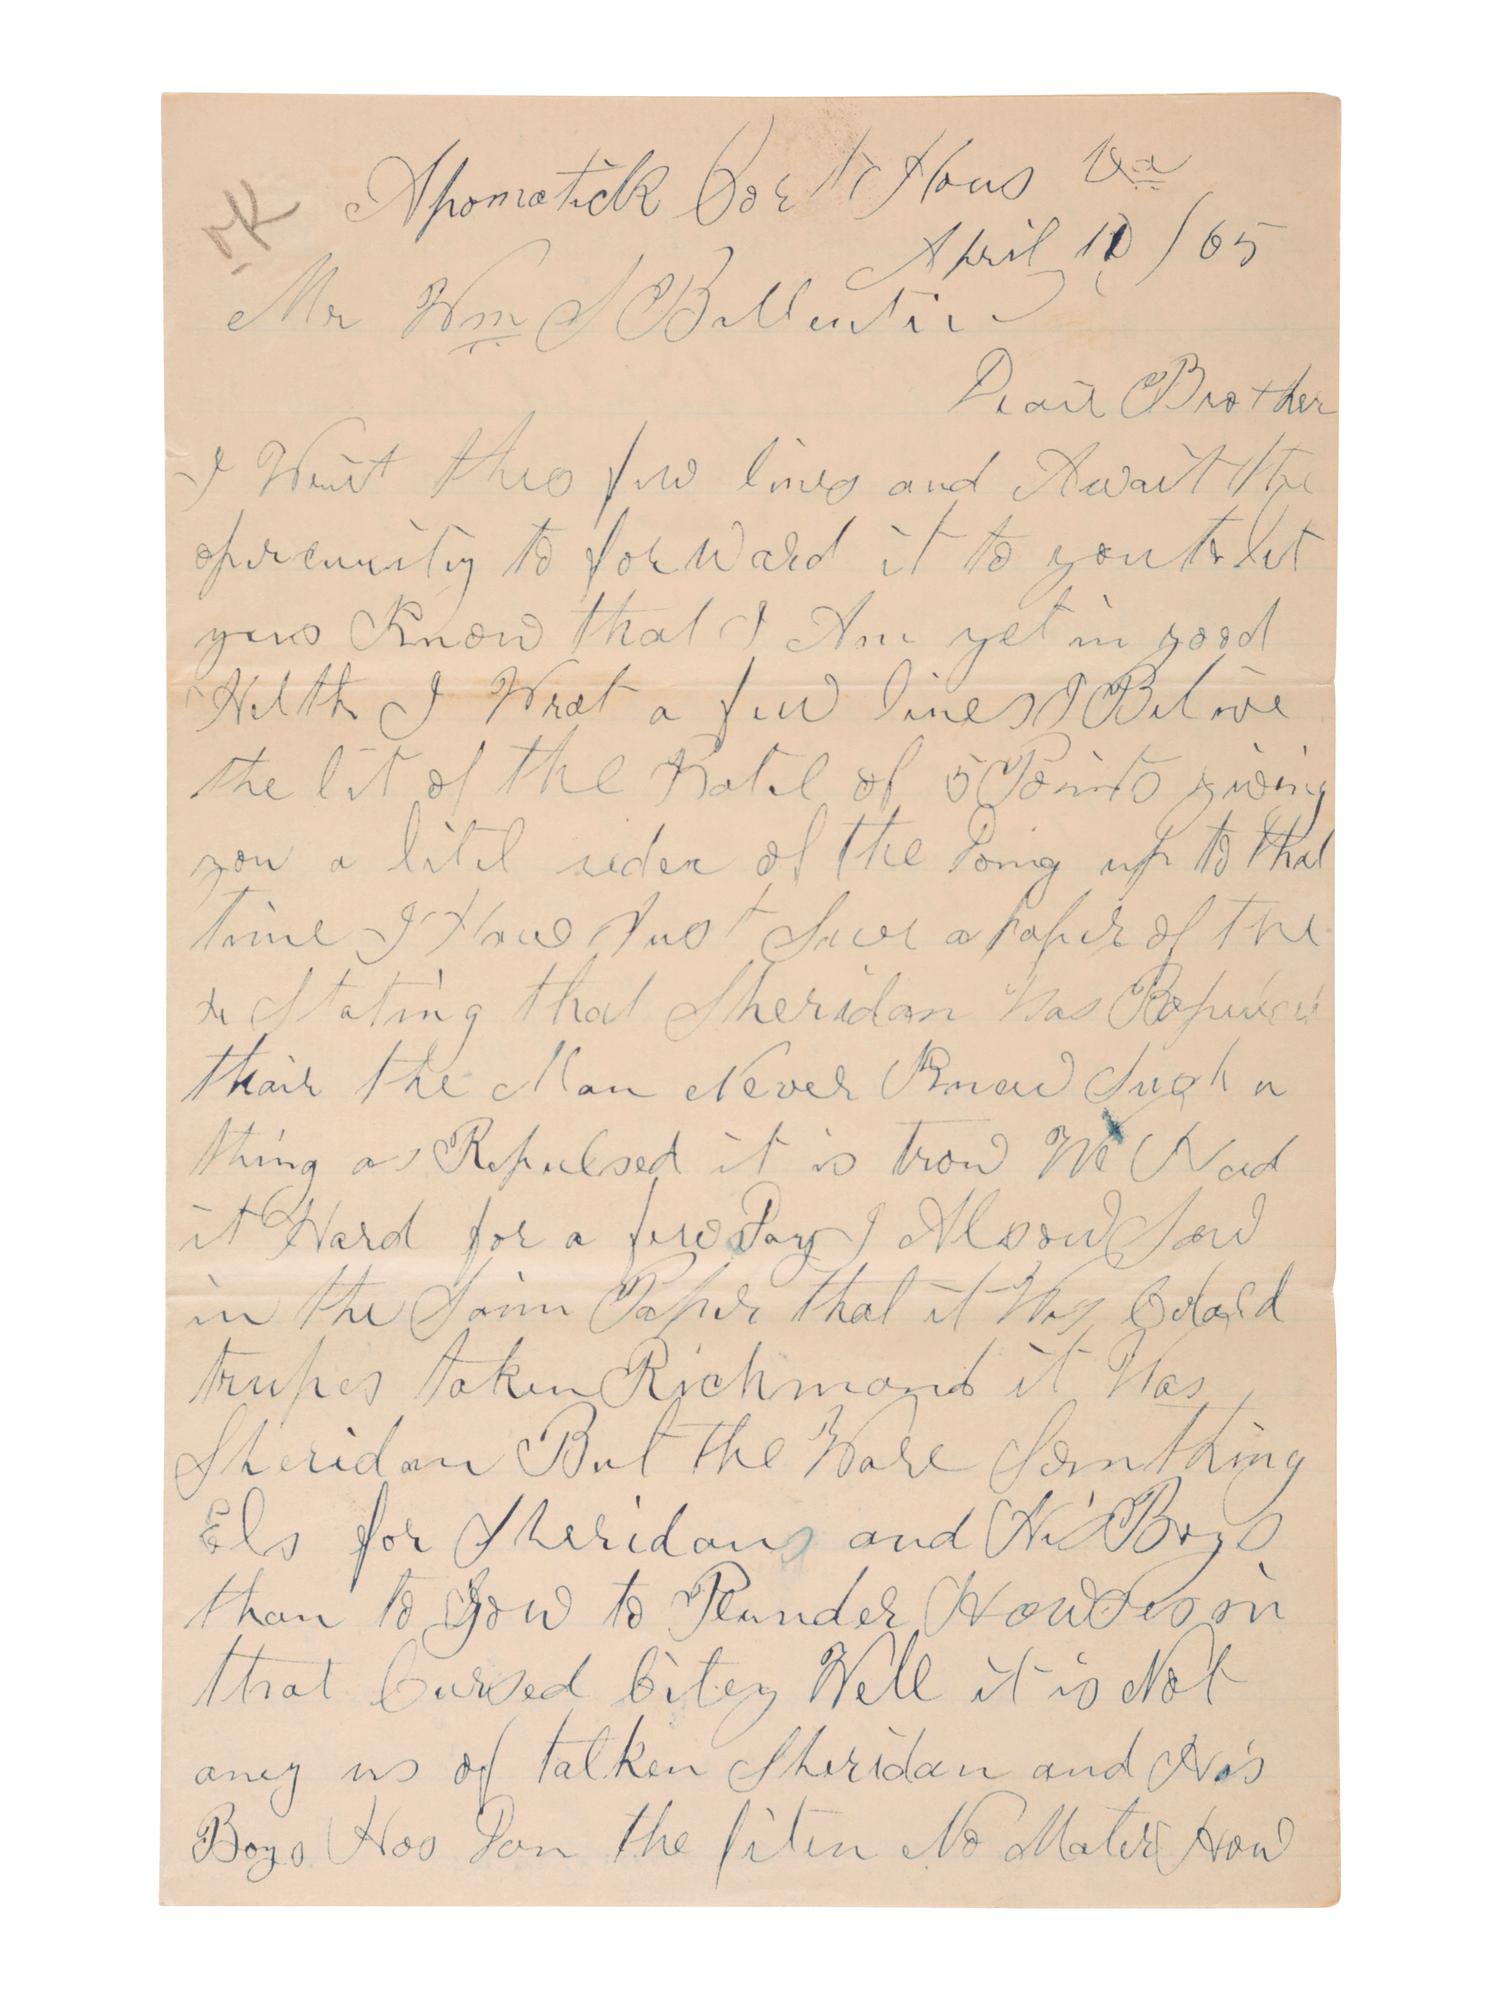 OK
Apomatick Cort Hous Va
April 10 / 65
Mr Wm S Ballentine
Dear Brother
I Writ this few lines and Await the
opircunity to forward it to you to let
you Know that I Am yet in good
Helth I Wrat a few lines I Belove
the lit of the Batel of 5 Points giving
you a litel ieder of the Doing up to that
time I Have Just Saw a Paper of the
Stating that Sheridan Was
thair the Man Never Knew Such a
thing as Repulsed it is trow We Had
it Hard for a few Day I Alsow Saw
in the Saim Paper that it Was
trupes taken Richmond it Was
Sheridan But the Ware Somthing
Els for Sheridans and His Boys
than to Gow to Plunder Howses in
that Cursed Citey Well it is Not
aney us of talken Sheridan and His
Boys Has Don the fiten No Mater How